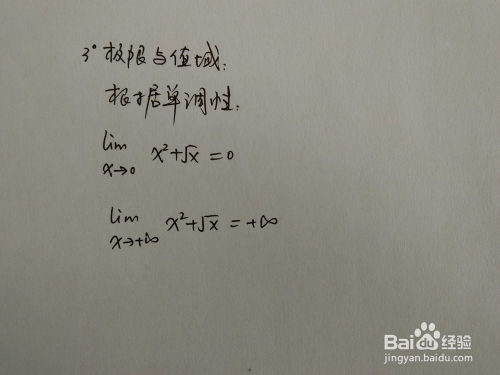 3° 极限与值域:
根据单调性:
lim x→0 x²+√x = 0
lim x→+∞ x²+√x = +∞
Baidu 经验
jingyan.baidu.com